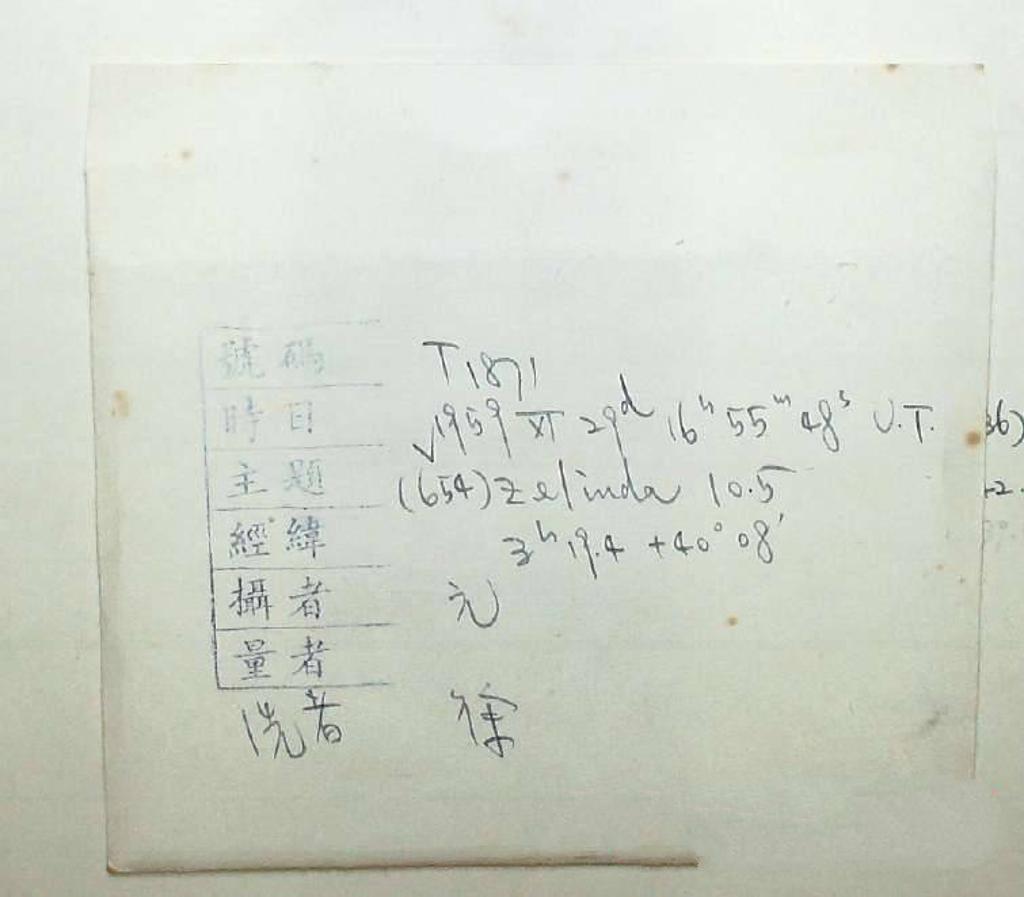 號碼 T1871
時日 √1959 XI 29d 16h 55m 48s U.T.
主題 (654) Zelinda 10.5
經緯 3h 19.4 +40° 08'
攝者 元
量者
洗者 徐